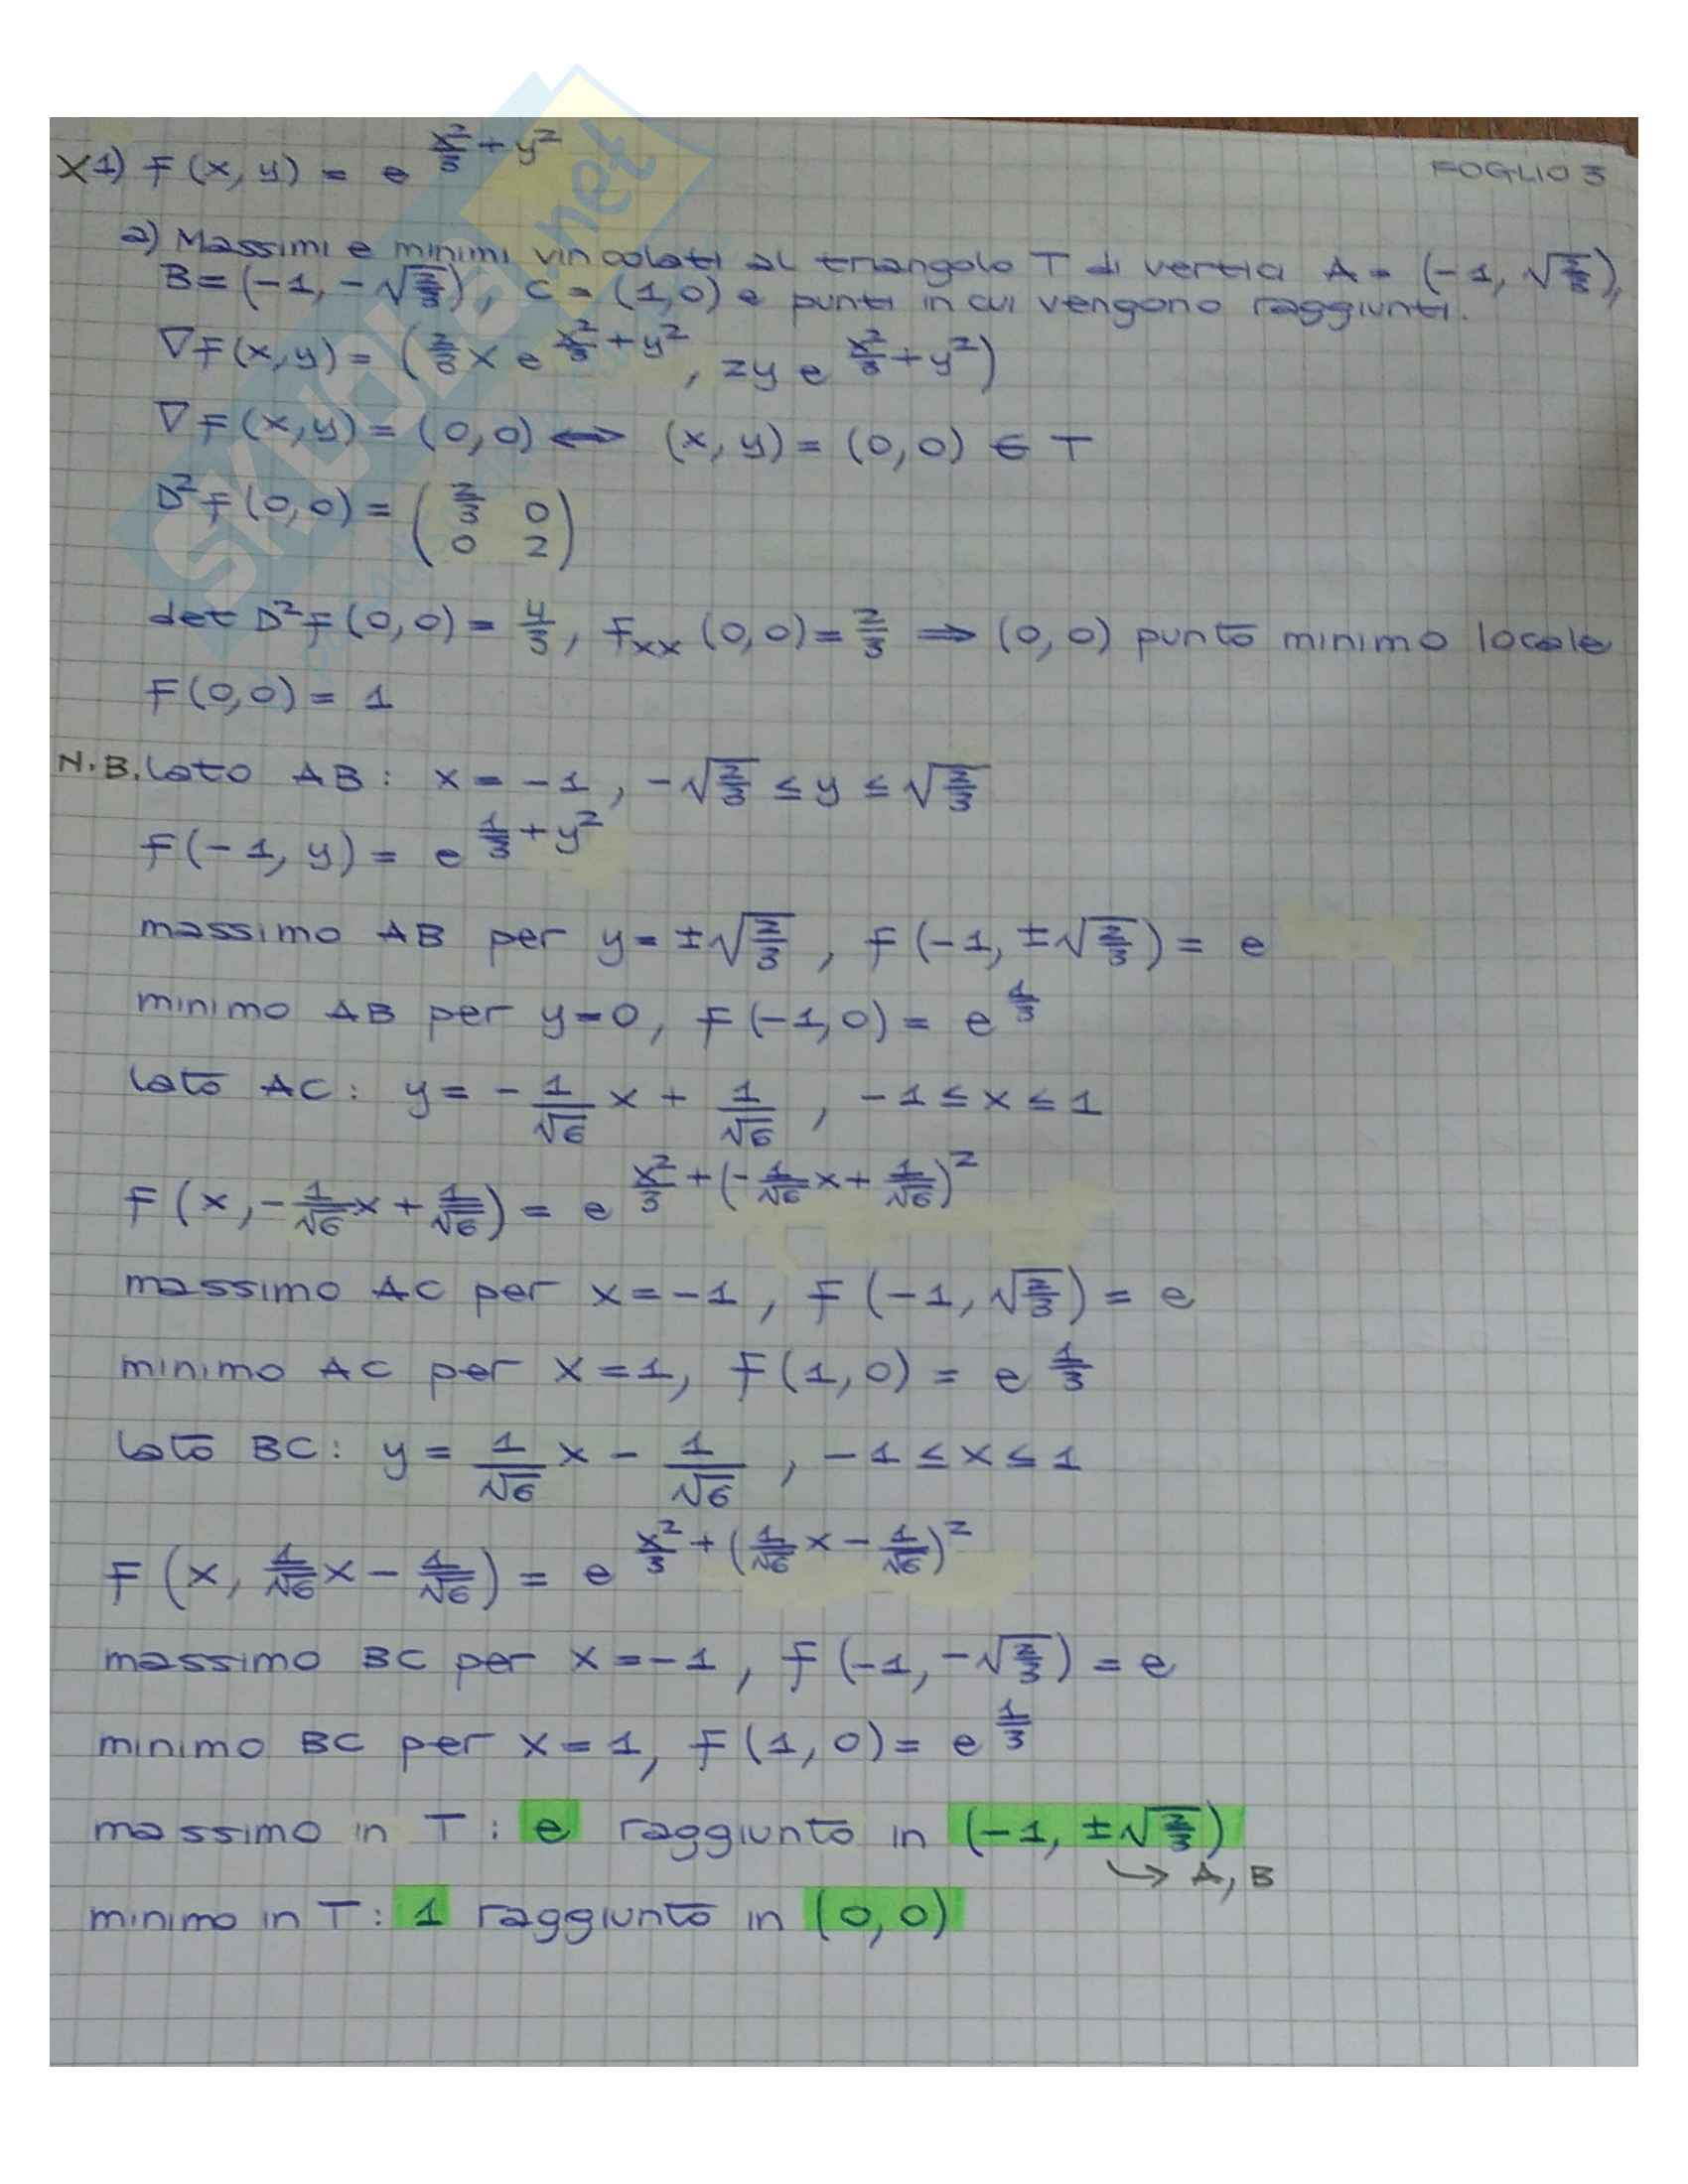 X1) F(x, y) = e^(x²/3 + y²)
FOGLIO 3
a) Massimi e minimi vincolati al triangolo T di vertici A = (-1, √(2/3)),
B = (-1, -√(2/3)), C = (1,0) e punti in cui vengono raggiunti.
∇F(x,y) = (2/3 x e^(x²/3 + y²), 2y e^(x²/3 + y²))
∇F(x,y) = (0,0) ⟺ (x, y) = (0,0) ∈ T
D²F(0,0) = (2/3 0
0 2)
det D²F(0,0) = 4/3, Fxx (0,0) = 2/3 ⟹ (0,0) punto minimo locale
F(0,0) = 1
N.B. lato AB: x = -1, -√(2/3) ≤ y ≤ √(2/3)
F(-1, y) = e^(1/3 + y²)
massimo AB per y = ±√(2/3), F(-1, ±√(2/3)) = e
minimo AB per y=0, F(-1,0) = e^(1/3)
lato AC: y = -1/√6 x + 1/√6, -1 ≤ x ≤ 1
F(x, -1/√6 x + 1/√6) = e^(x²/3 + (-1/√6 x + 1/√6)²)
massimo AC per x = -1, F(-1, √(2/3)) = e
minimo AC per x=1, F(1,0) = e^(1/3)
lato BC: y = 1/√6 x - 1/√6, -1 ≤ x ≤ 1
F(x, 1/√6 x - 1/√6) = e^(x²/3 + (1/√6 x - 1/√6)²)
massimo BC per x = -1, F(-1, -√(2/3)) = e
minimo BC per x = 1, F(1,0) = e^(1/3)
massimo in T: e raggiunto in (-1, ±√(2/3))
→ A, B
minimo in T: 1 raggiunto in (0,0)
skuola.net